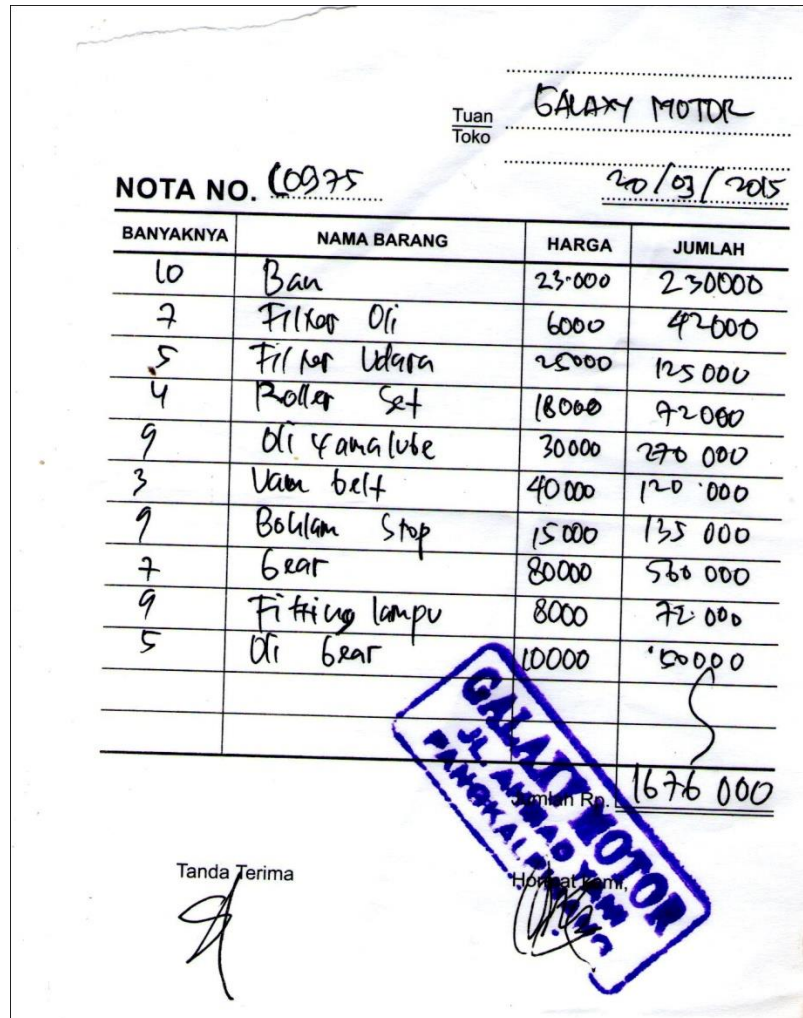 GALAXY MOTOR
Tuan
Toko
NOTA NO. 10975 20/03/2015
BANYAKNYA NAMA BARANG HARGA JUMLAH
10 Ban 23.000 230000
7 Filter Oli 6000 42000
5 Filter Udara 25000 125000
4 Roller Set 18000 72000
9 Oli Yamalube 30000 270 000
3 Vam belt 40000 120.000
9 Bohlam Stop 15000 135 000
7 Gear 80000 560 000
9 Fitting lampu 8000 72.000
5 Oli Gear 10000 50000
Jumlah Rp. 1676 000
Tanda Terima Hormat kami,
GALAXY MOTOR
JL. AHMAD YANI
PANGKALPINANG